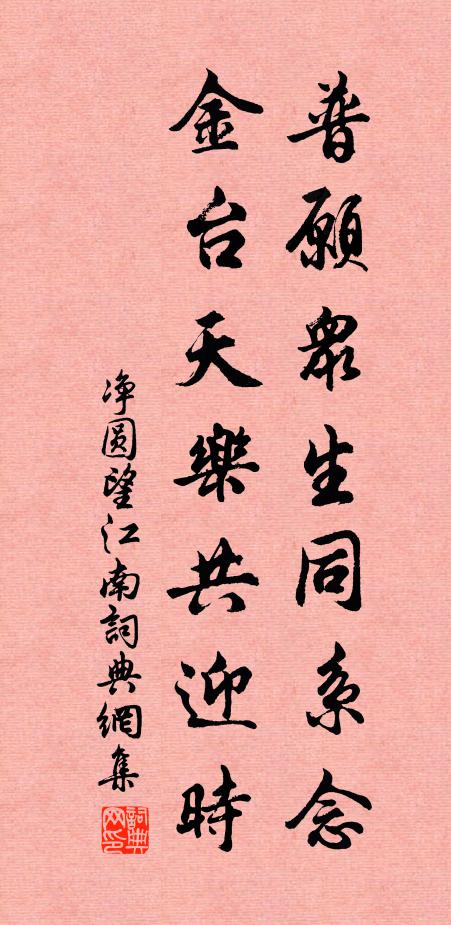 普願眾生同系念
金台天樂共迎時
净圆望江南詞典網集
詞典網印